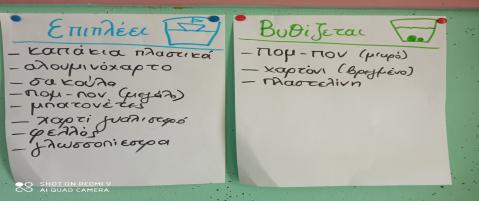 Επιπλέει
- καπάκια πλαστικά
- αλουμινόχαρτο
- σακούλα
- πομ-πον (μεγάλο)
- μπατονέτες
- χαρτί γυαλιστερό
- φελλός
- γλωσσοπίεστρα
Βυθίζεται
- πομ-πον (μικρό)
- χαρτόνι (βρεγμένο)
- πλαστελίνη
SHOT ON REDMI 9
AI QUAD CAMERA